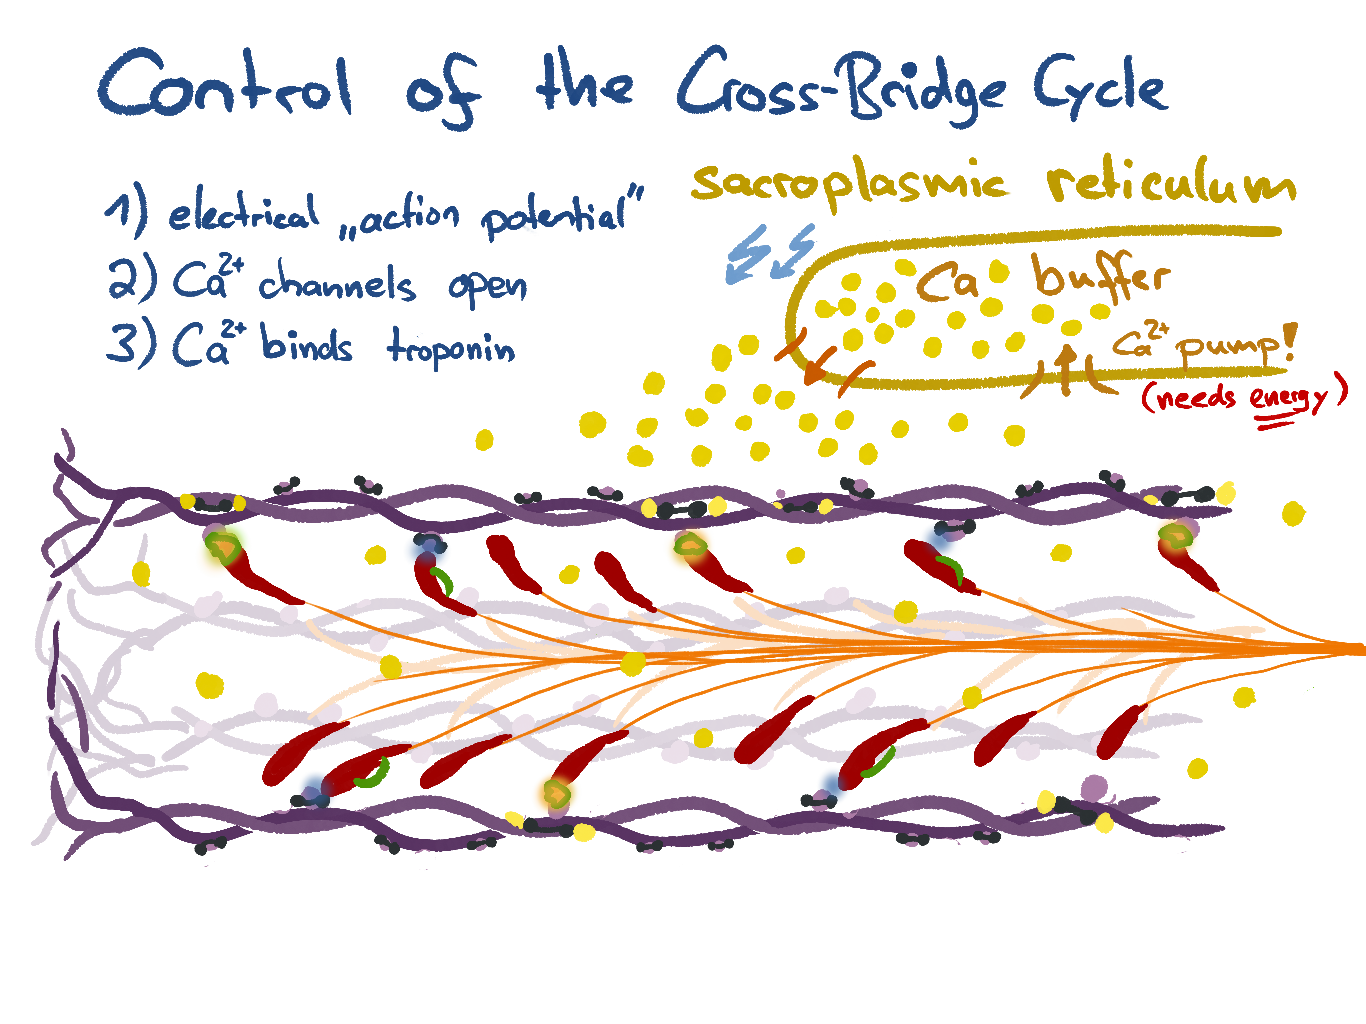 Control of the Cross-Bridge Cycle
1) electrical „action potential”
2) Ca²⁺ channels open
3) Ca²⁺ binds troponin
sacroplasmic reticulum
Ca buffer
Ca²⁺ pump!
(needs energy)